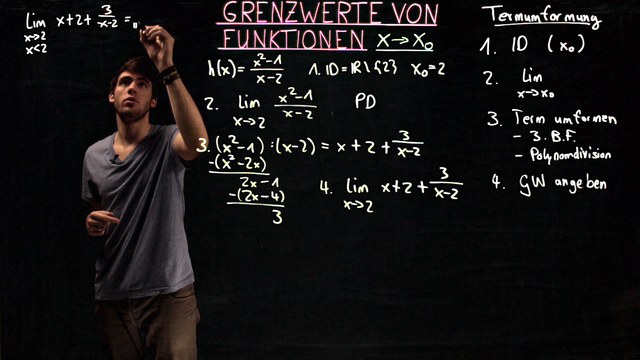 Lim x+2+ 3/(x-2) = "
x→2
x<2
GRENZWERTE VON
FUNKTIONEN x→x₀
h(x) = (x²-1)/(x-2) 1. ID = ℝ\{2} x₀=2
2. Lim (x²-1)/(x-2) PD
x→2
3. (x²-1) : (x-2) = x+2+ 3/(x-2)
-(x²-2x)
2x-1
-(2x-4)
3
4. Lim x+2+ 3/(x-2)
x→2
Termumformung
1. ID (x₀)
2. Lim
x→x₀
3. Term umformen
- 3. B.F.
- Polynomdivision
4. GW angeben